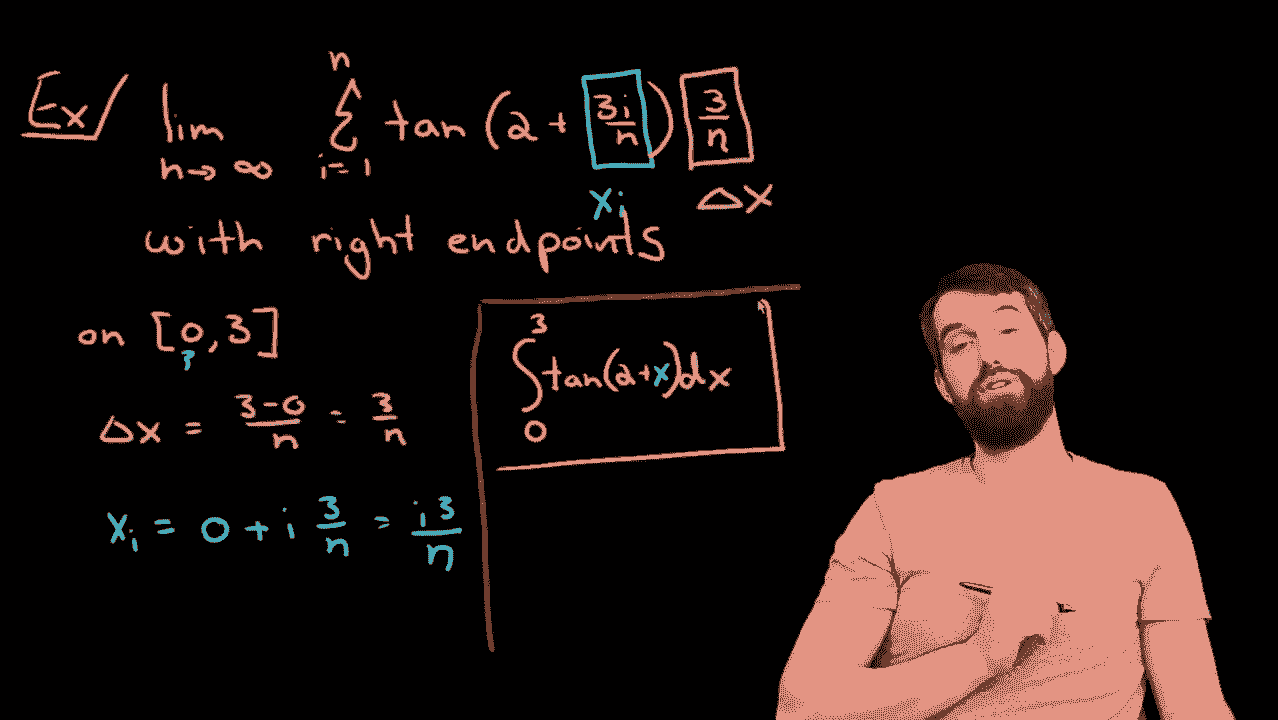 Ex/ lim n→∞ n Σ i=1 tan (2 + 3i/n) 3/n
xi Δx
with right endpoints
on [0,3]
?
Δx = 3-0/n = 3/n
xi = 0 + i 3/n = i3/n
∫ 3 0 tan(2+x)dx